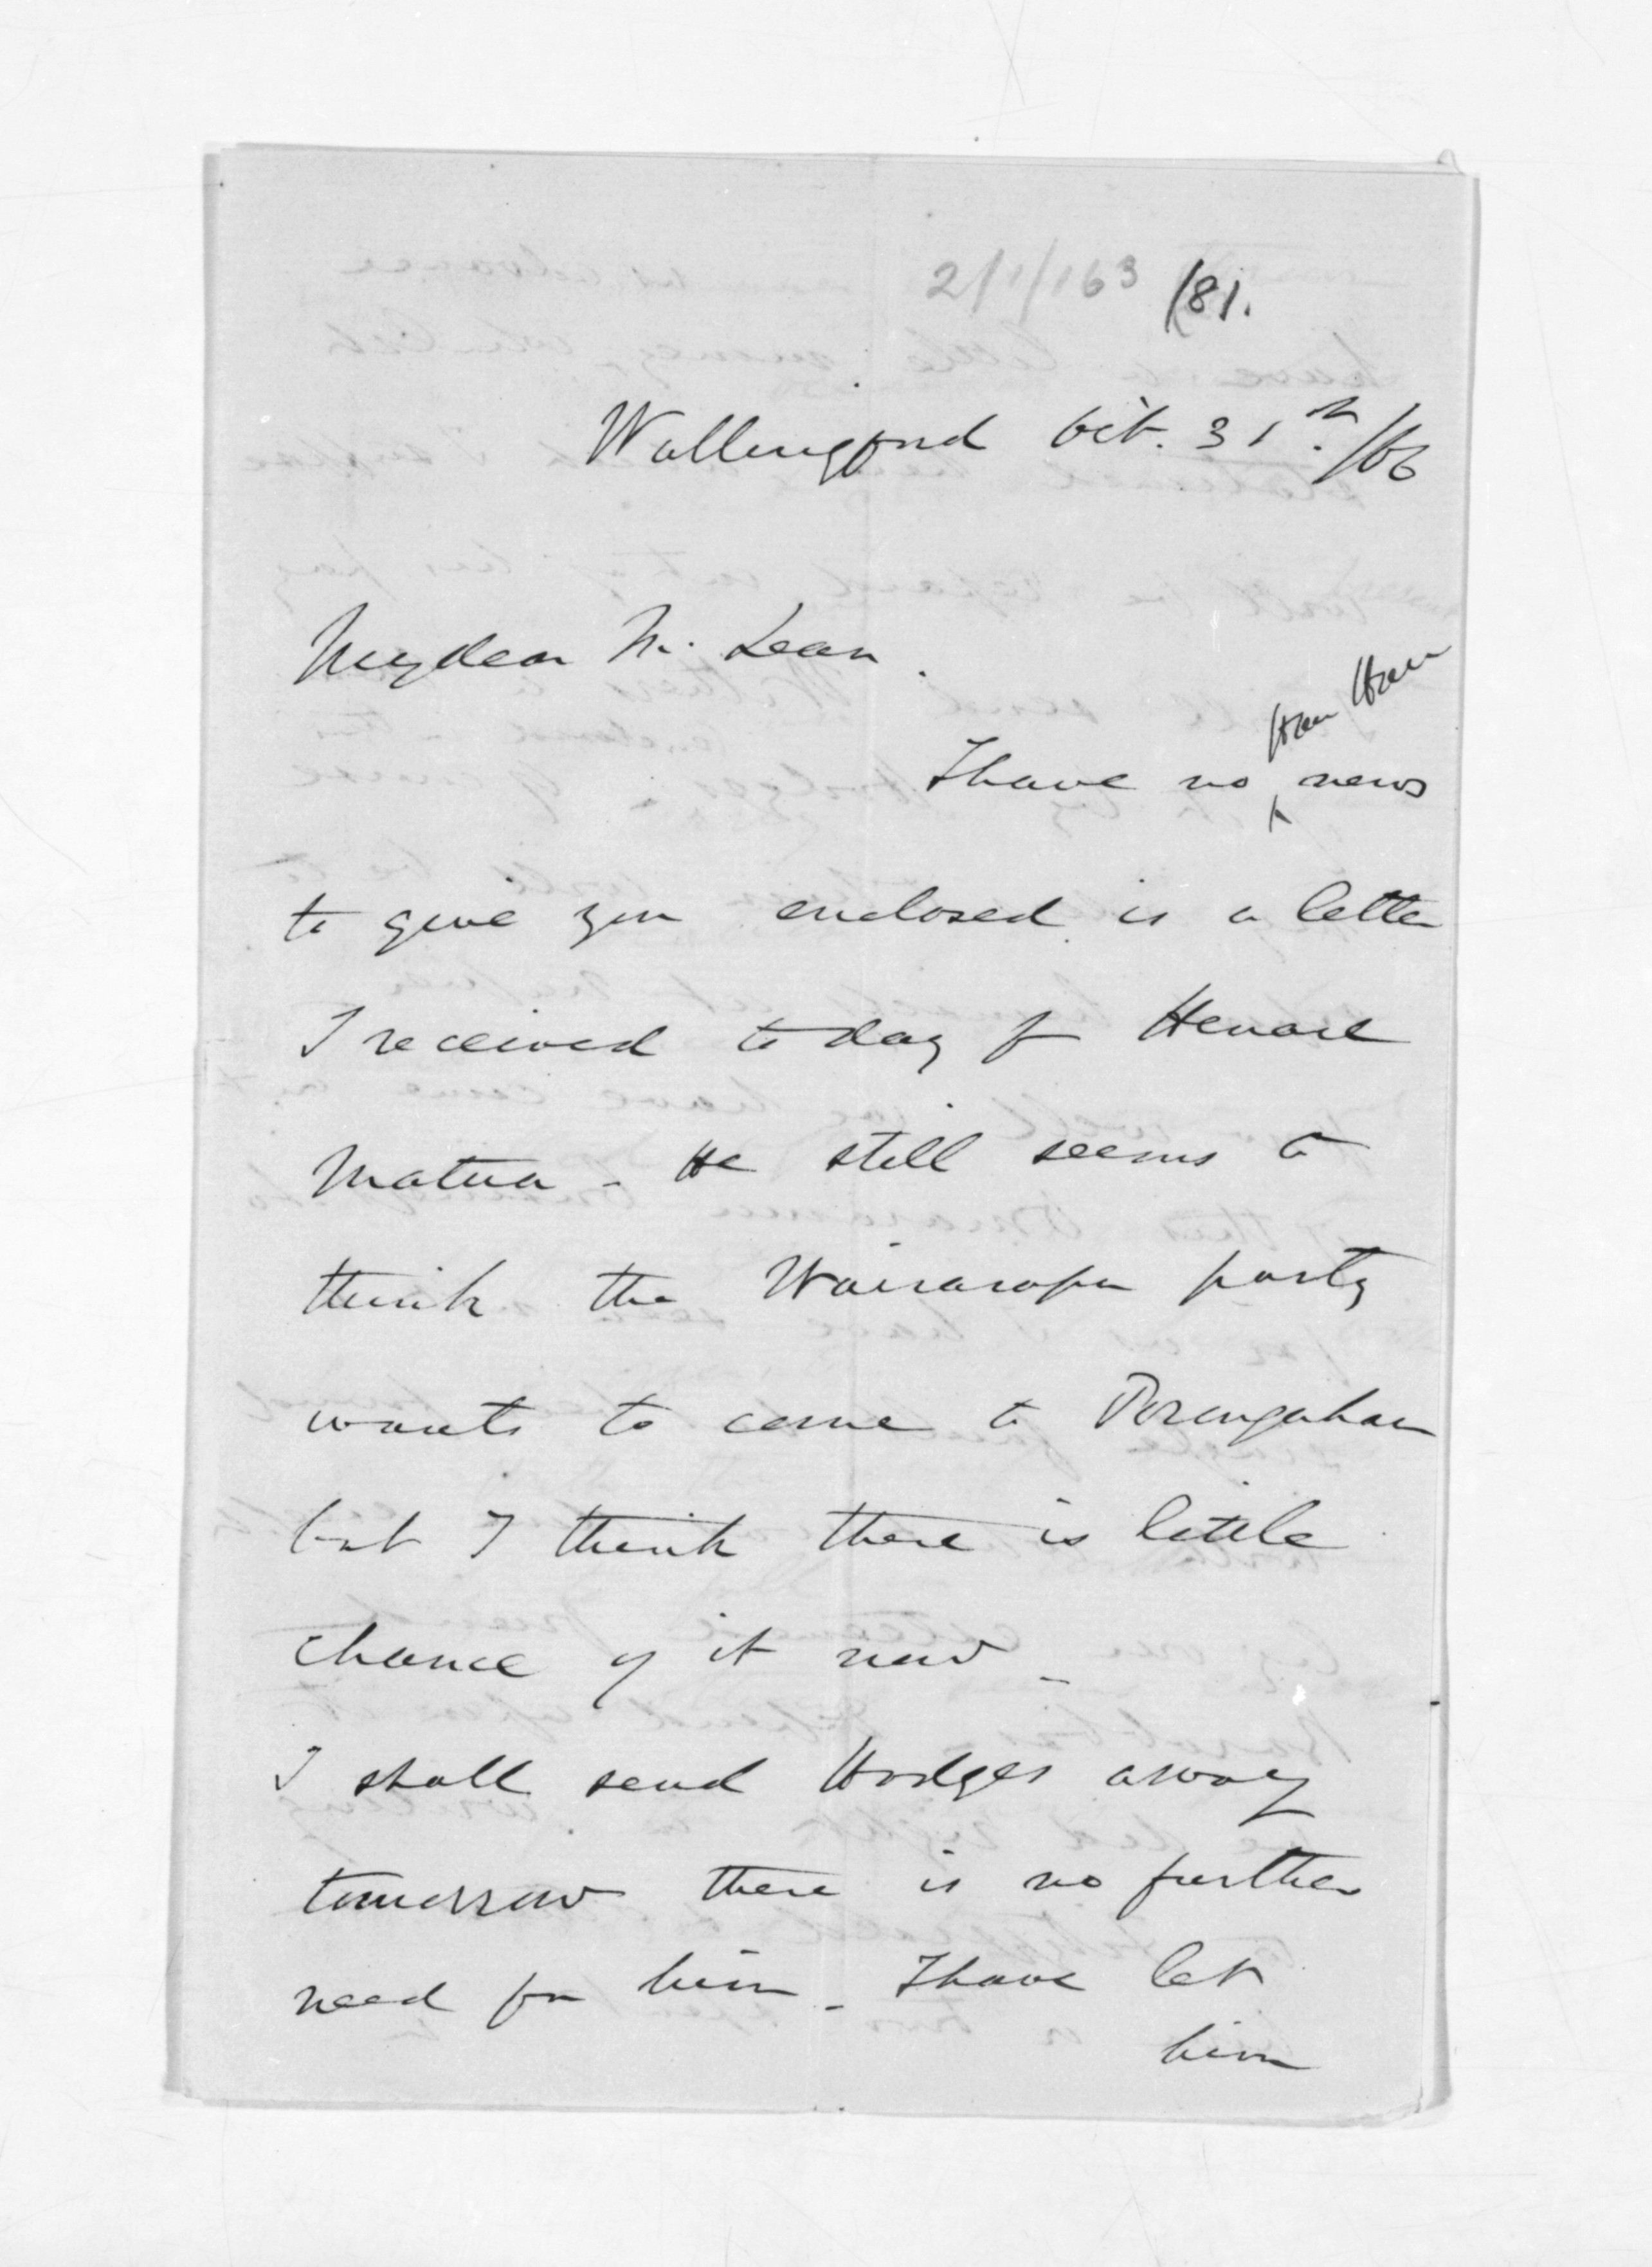 2/1/163 /81.
Wallingford Oct. 31st/66
My dear McLean.
Hau Hau
I have no ^ news
to give you enclosed is a letter
I received today f Henare
Matua - He still seems to
think the Wairarapa party
wants to come to Porangahau
but I think there is little
chance of it now -
I shall send Hodges away
tomorrow there is no further
need for him - I have let
him